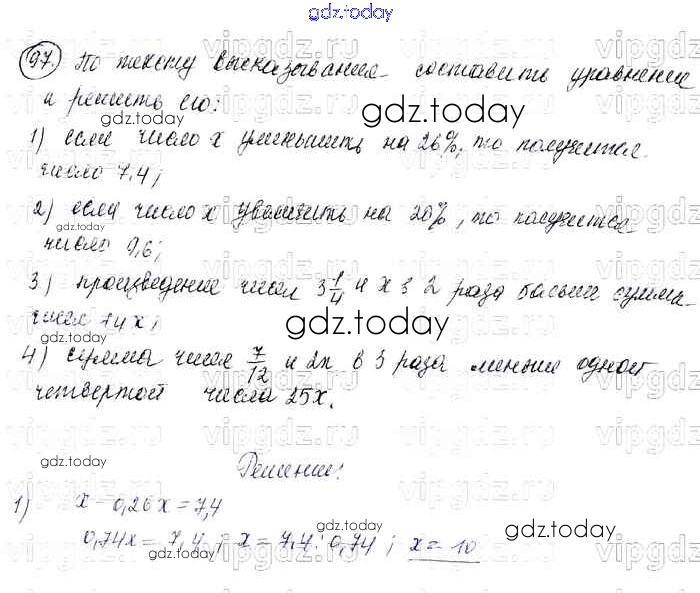 gdz.today
97. По тексту высказывания составить уравнение
и решить его:
gdz.today
1) если число x уменьшить на 26%, то получится
число 7,4;
gdz.today
2) если число x увеличить на 20%, то получится
gdz.today
число 9,6;
3) произведение чисел 3 1/4 и x в 2 раза больше суммы
чисел 14 x;
gdz.today
4) сумма чисел 7/12 и 2x в 3 раза меньше одной
четвертой числа 25x.
gdz.today
Решение:
1) x - 0,26x = 7,4
gdz.today
0,74x = 7,4; x = 7,4 : 0,74; x = 10
gdz.today
vipgdz.ru